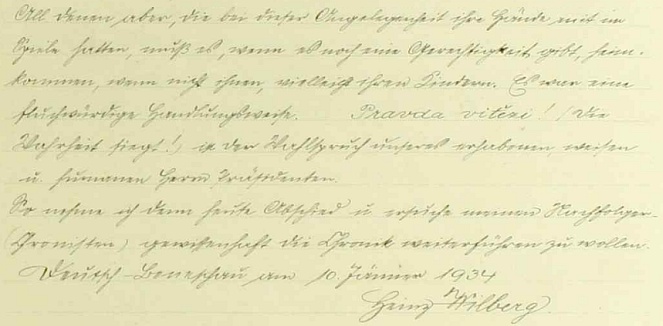 All denen aber, die bei dieser Angelegenheit ihre Hände mit im
Spiele hatten, muß es, wenn es noch eine Gerechtigkeit gibt, heim-
kommen, wenn nicht ihnen, vielleicht ihren Kindern. Es war eine
fluchwürdige Handlungsweise. Pravda vitězi! (Die
Wahrheit siegt!) ist der Wahlspruch unseres erhabenen, weisen
u. humanen Herrn Präsidenten.
So nehme ich denn heute Abschied u. ersuche meinen Nachfolger
(Chronisten) gewissenhaft die Chronik weiterführen zu wollen.
Deutsch-Beneschau am 10. Jänner 1934
Heinz Wilberg.